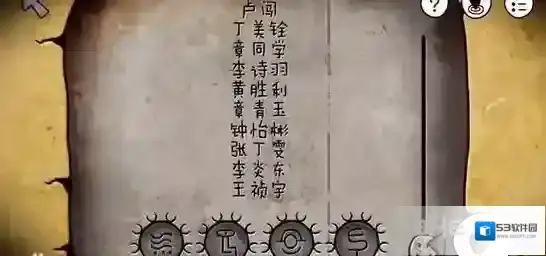 卢闯
丁美铨
章同学
李诗羽
黄胜利
章青玉
钟怡彬
张丁雯
李炎东
王祯宇
?
53软件园